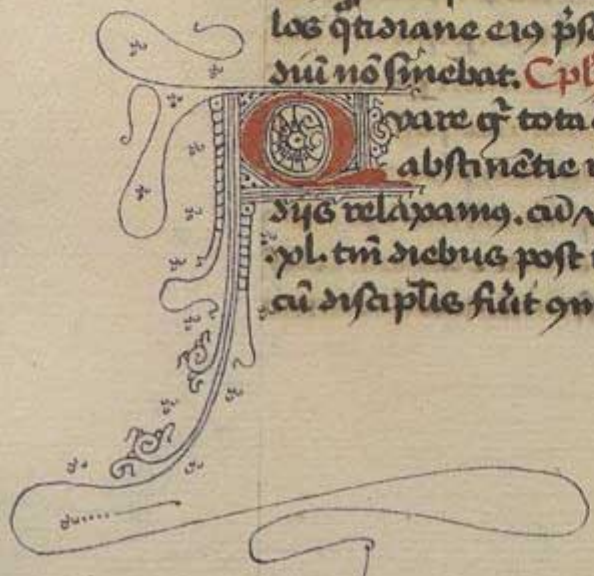 los q̄tidiane eiꝰ p̄s
diū nō sinebat. Cpl
Quare gͬ tota
abstinētie
diis relaxamꝰ. cū
.xl. tm̄ diebus post
cū discipl̄is fūit